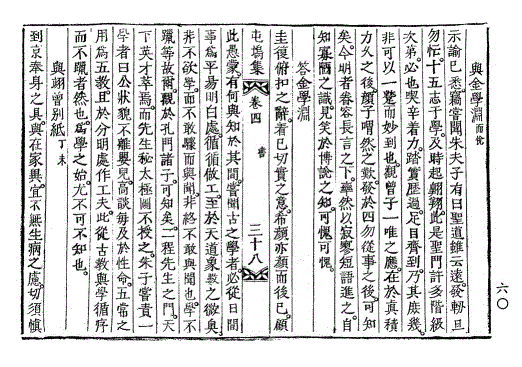 與金學淵 而忱
示諭已悉竊嘗聞朱夫子有曰聖道雖云遠發軔且
勿忙十五志于學及時起翱翔此是聖門許多階級
次第必也喫辛着力踏實歷過足目齊到乃其庶幾
非可以一蹙而妙到也觀曾子一唯之應在於眞積
力久之後顔子喟然之歎發於四勿從事之後可知
矣今明者春容長言之下率然以寂寥短語進之自
知寡陋之識見笑於博識之知可愧可愧
答金學淵
圭復俯扣之辭着已切實之意希顔亦顔而後已顧
屯塢集 卷四 書 三十八
此愚蒙有何與知於其間嘗聞古之學者必從日間
事爲平易明白處循循做工至於天道象數之微奧
非不欲學而不敢驟而與聞非終不敢與聞也學不
躐等故爾觀於孔門諸子可知矣二程先生之門天
下英才萃焉而先生秘太極圖不授之朱子嘗責一
學者曰公狀貌不離嬰兒高談每及於性命五常之
用爲五敎且於分明處作工夫此從古敎與學循序
而不躐者然也爲學之始尤不可不知也
與翊曾別紙 丁未
到京奉身之具與在家異宜不無生病之慮切須愼
六〇